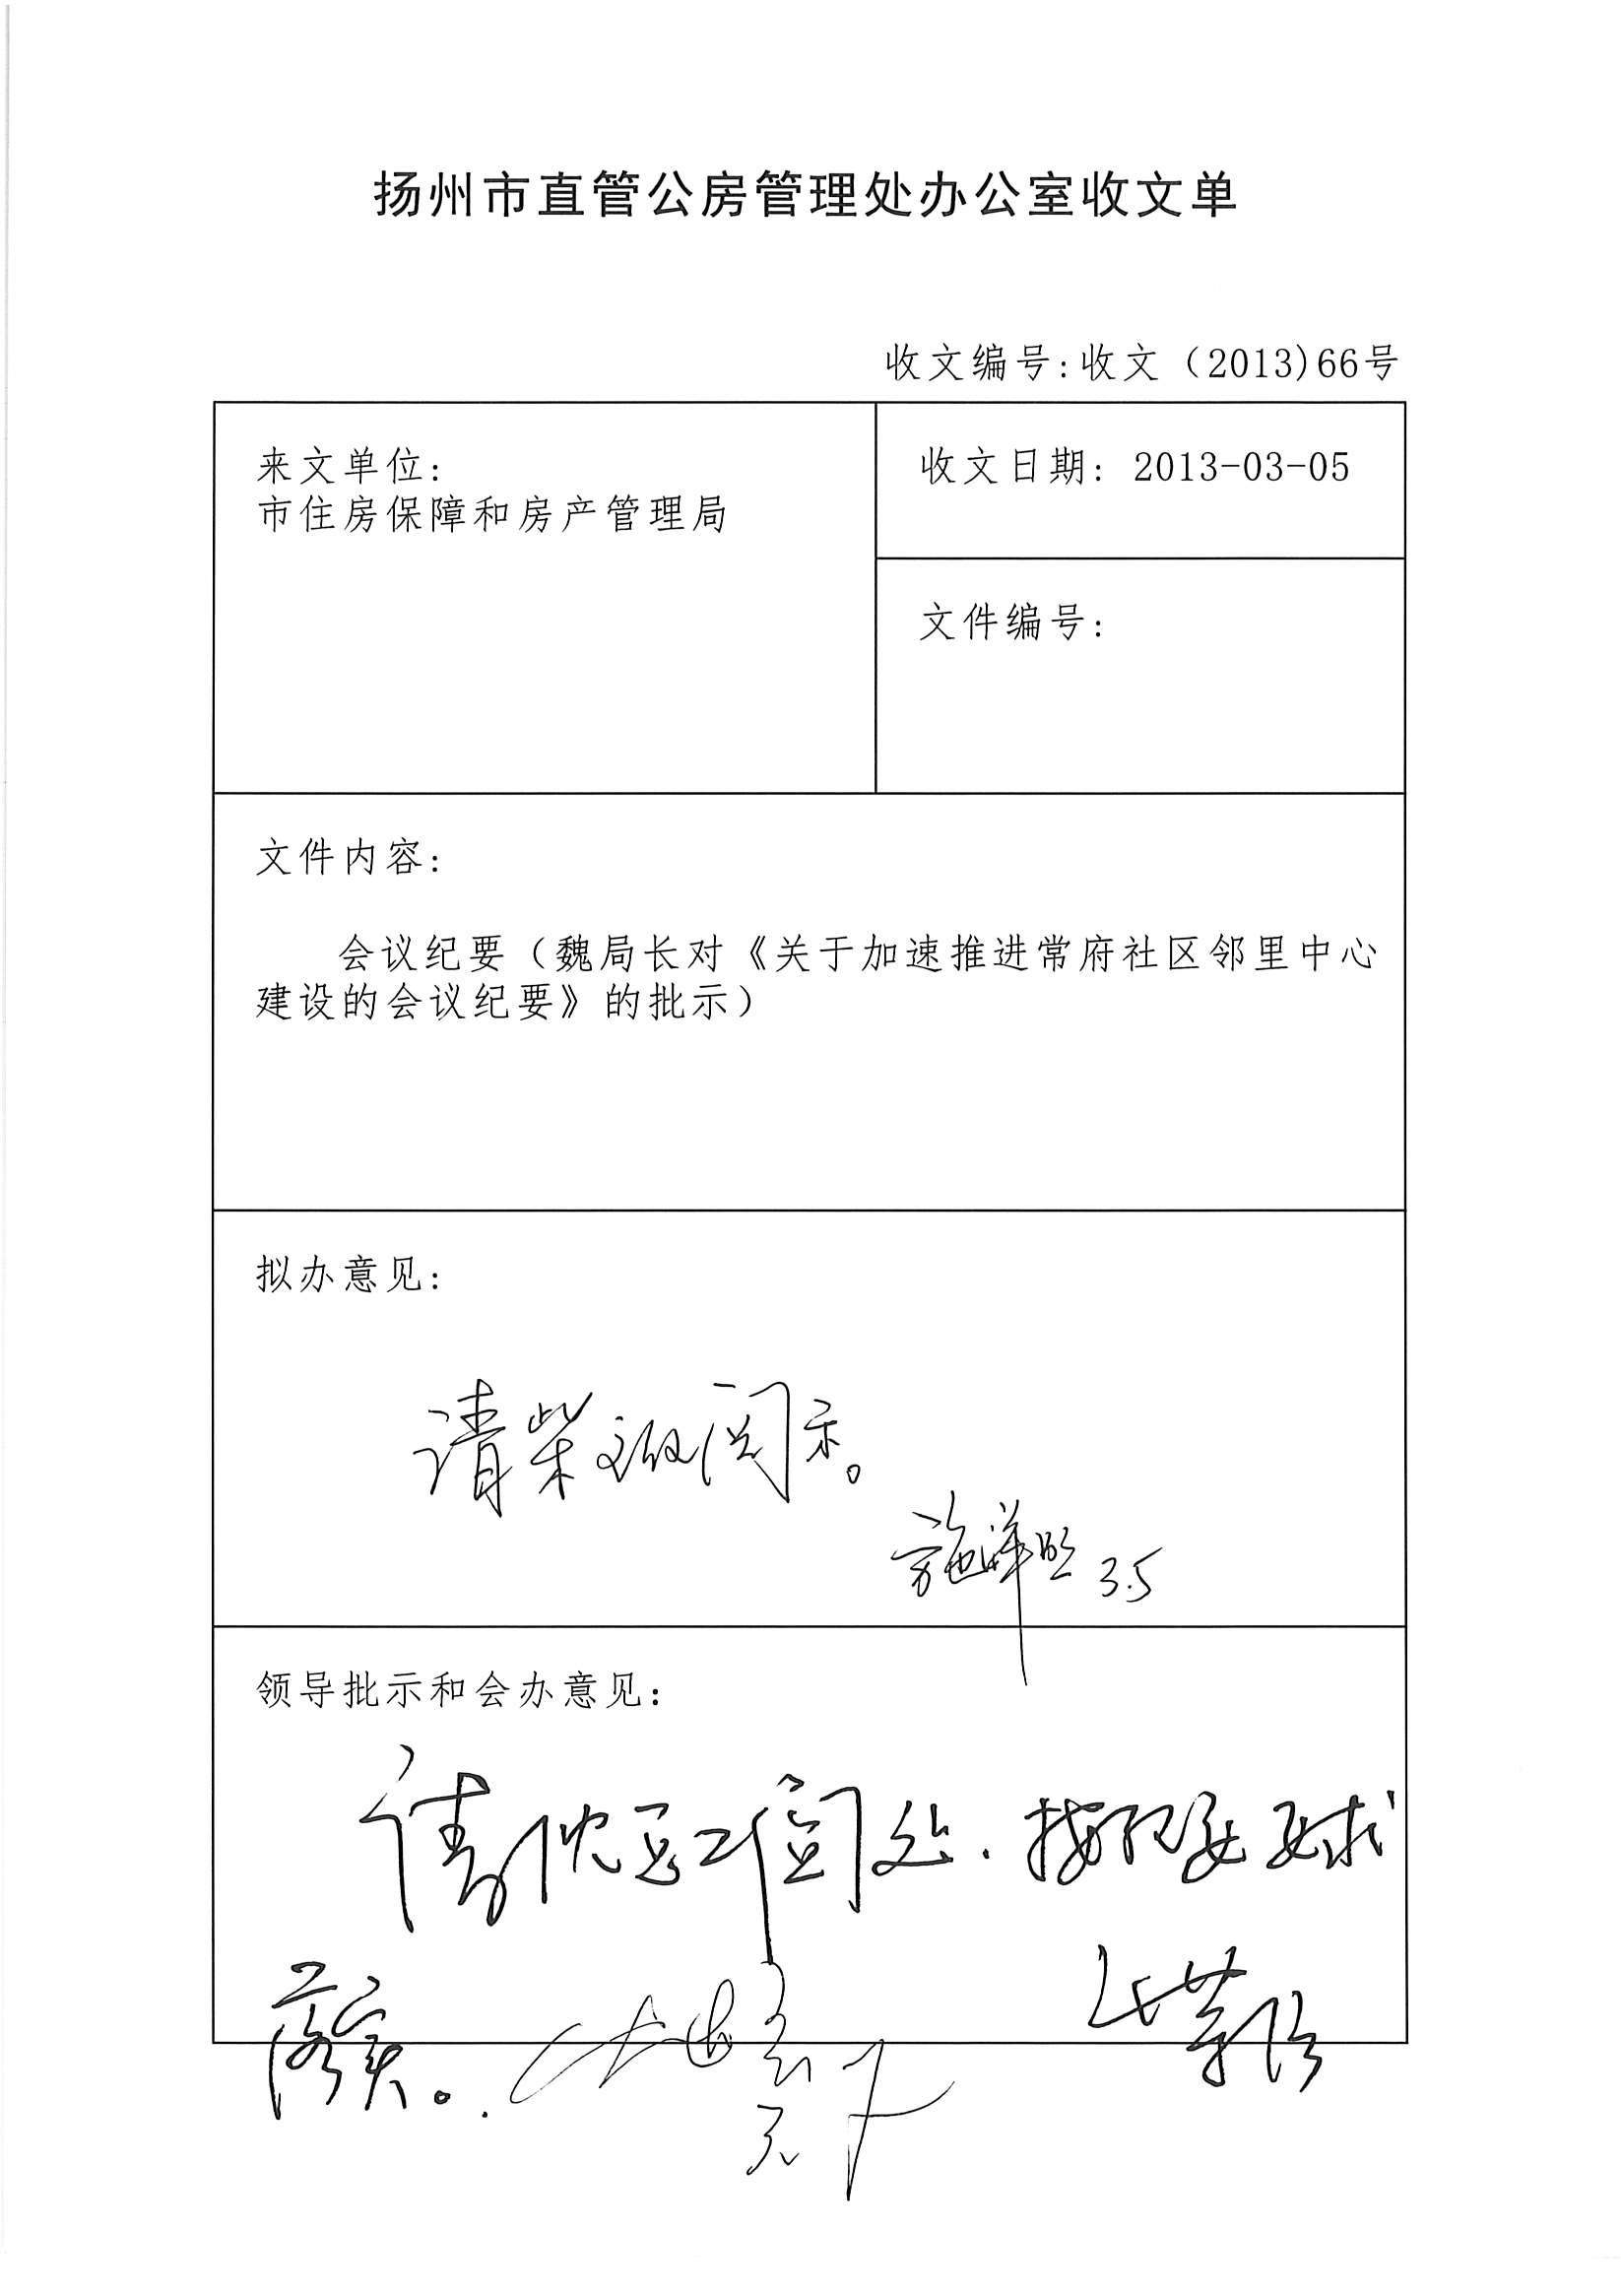 扬州市直管公房管理处办公室收文单
收文编号:收文（2013)66号
来文单位:
市住房保障和房产管理局
收文日期: 2013-03-05
文件编号:
文件内容:
会议纪要（魏局长对《关于加速推进常府社区邻里中心
建设的会议纪要》的批示）
拟办意见:
请柴 阅示。
施 3.5
领导批示和会办意见:
请 阅处.按纪要要求
落实。